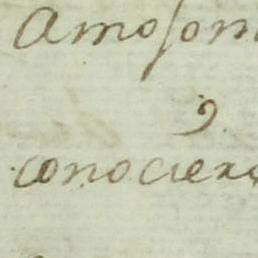 Amoſom
9
conociera